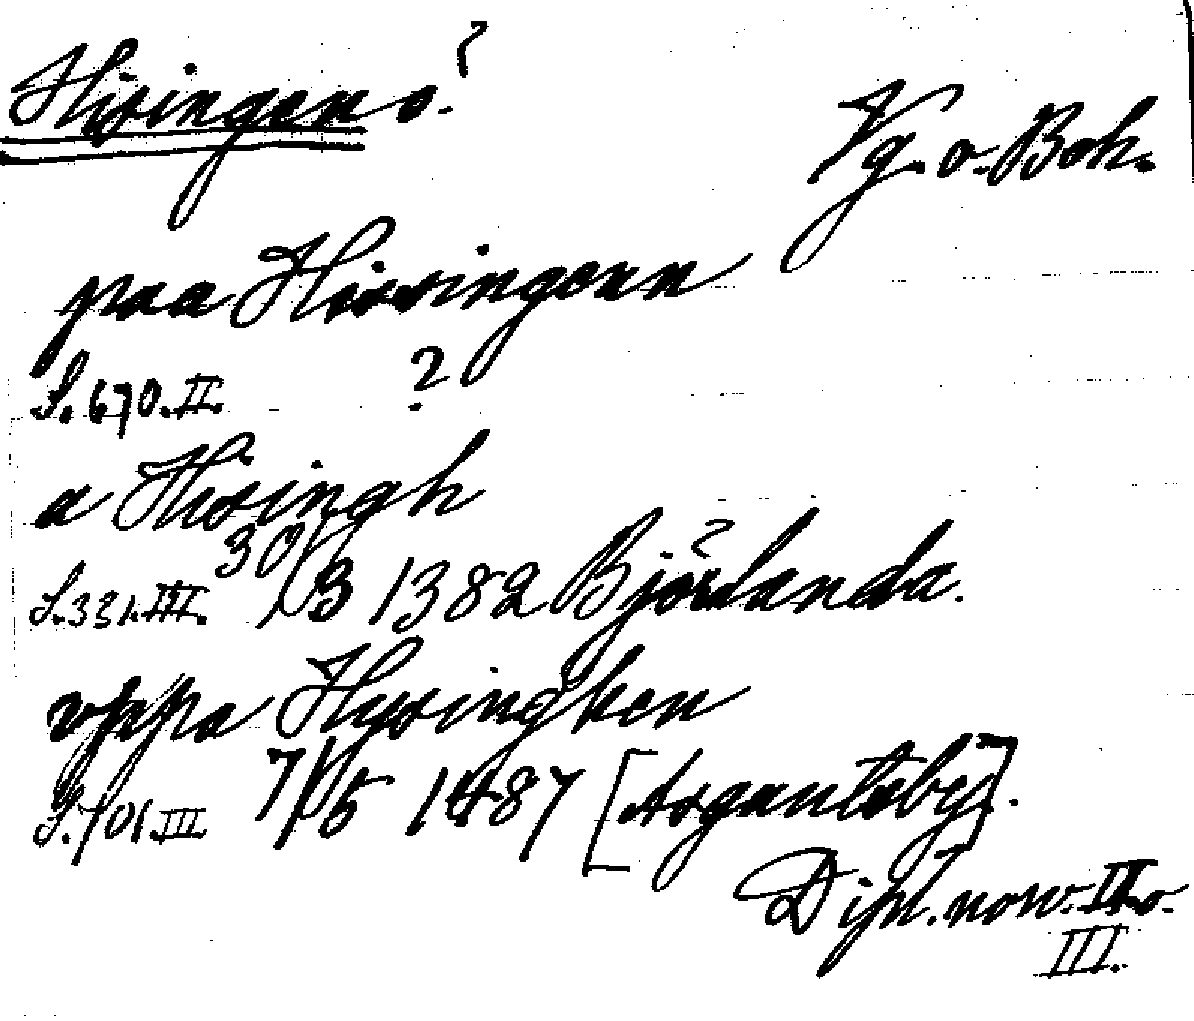 Hisingen ö. ?
Vg. o. Boh.
paa Hissingenn
S. 670. II. ?
a Hisingh
S. 331. III. 30/3 1382 Björlanda. ?
vppa Hysinghen
S. 101. III. 7/5 1487 [Asgautsby].
Dipl. norv. II. o.
III.